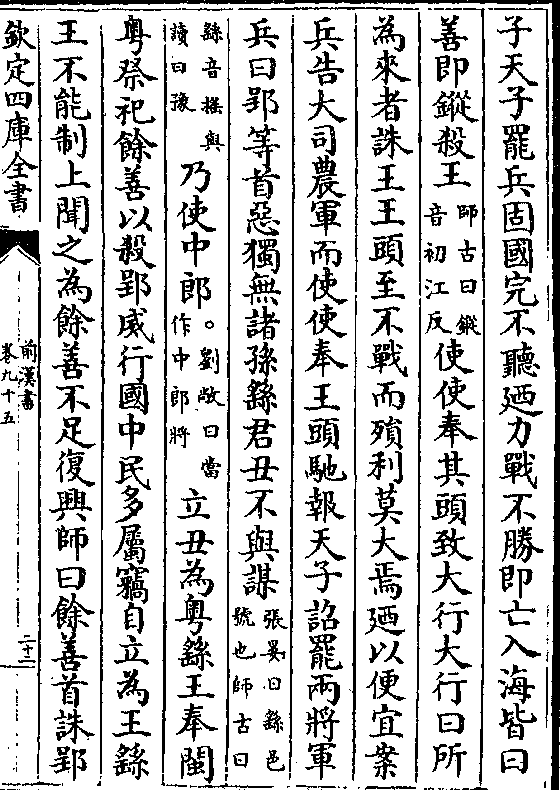 子天子罷兵固國完不聽廼力戰不勝即亡入海皆曰
善即鏦殺王師古曰鏦音初江反使使奉其頭致大行大行曰所
為來者誅王王頭至不戰而殞利莫大焉廼以便宜案
兵告大司農軍而使使奉王頭馳報天子詔罷兩將軍
兵曰郢等首惡獨無諸孫繇君丑不與謀張晏曰繇邑號也師古曰
繇音搖與讀曰豫乃使中郎。劉敞曰當作中郎將立丑為粵繇王奉閩
粵祭祀餘善以殺郢威行國中民多屬竊自立為王繇
王不能制上聞之為餘善不足復興師曰餘善首誅郢
欽定四庫全書
前漢書
卷九十五
二十二